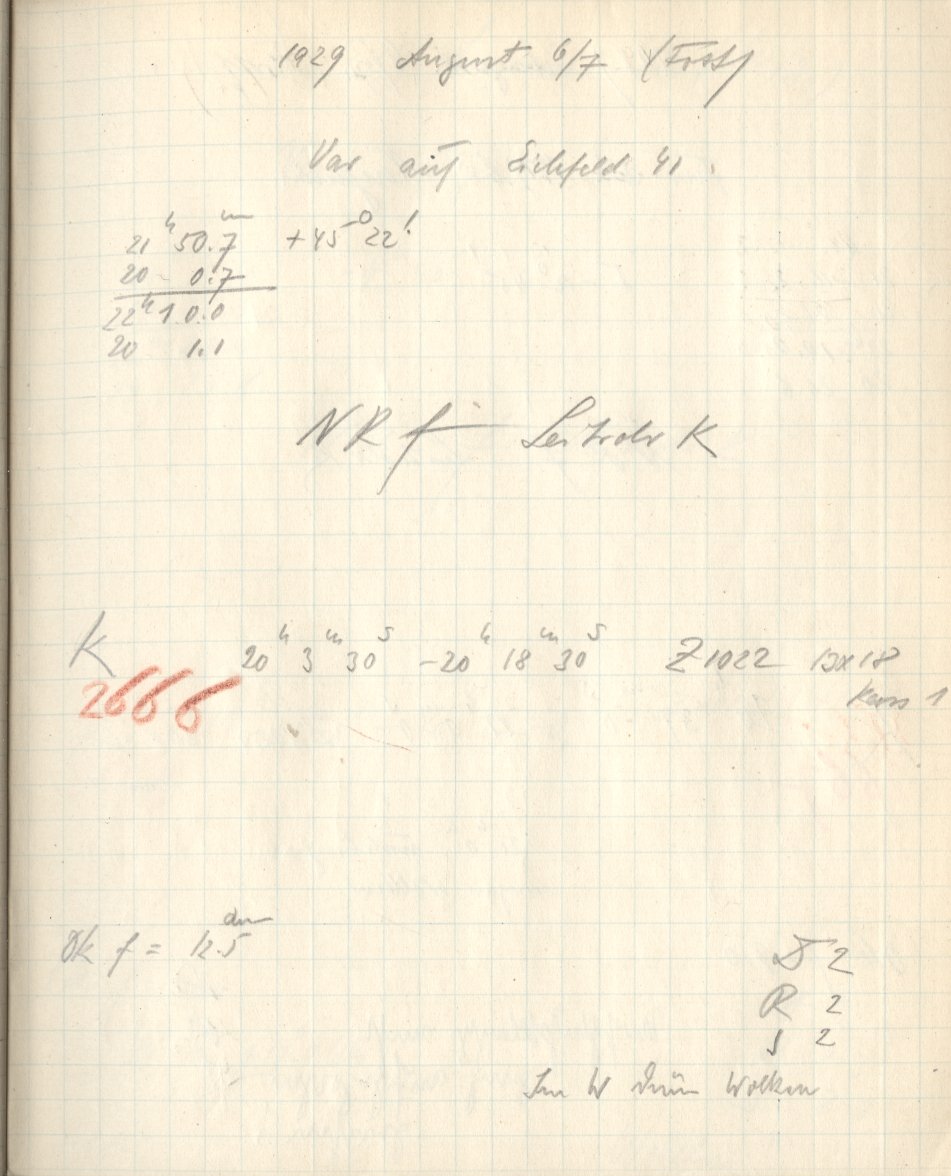 1929 August 6/7
Var auf Eichfeld 41.
21ʰ 50.7ᵐ +45° 22'
20 0.7
22ʰ 10.0
20 1.1
NR f Leitrohr K
K 20ʰ 3ᵐ 30ˢ - 20ʰ 18ᵐ 30ˢ Z 1022 13x18
2666 1
Ok f = 12.5
2
R 2
S 2
Im W dünn Wolken